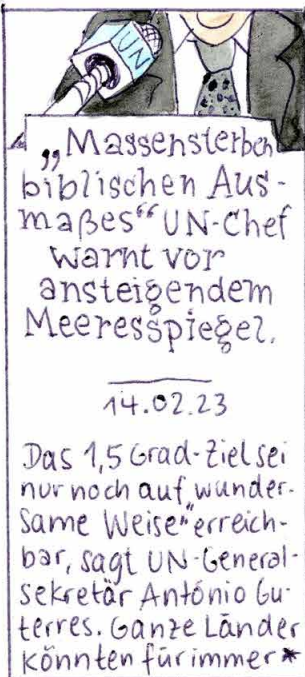 UN
„Massensterben
biblischen Aus-
maßes“ UN-Chef
warnt vor
ansteigendem
Meeresspiegel.
14.02.23
Das 1,5 Grad-Ziel sei
nur noch auf „wunder-
same Weise“ erreich-
bar, sagt UN-General-
sekretär António Gu-
terres. Ganze Länder
könnten für immer *